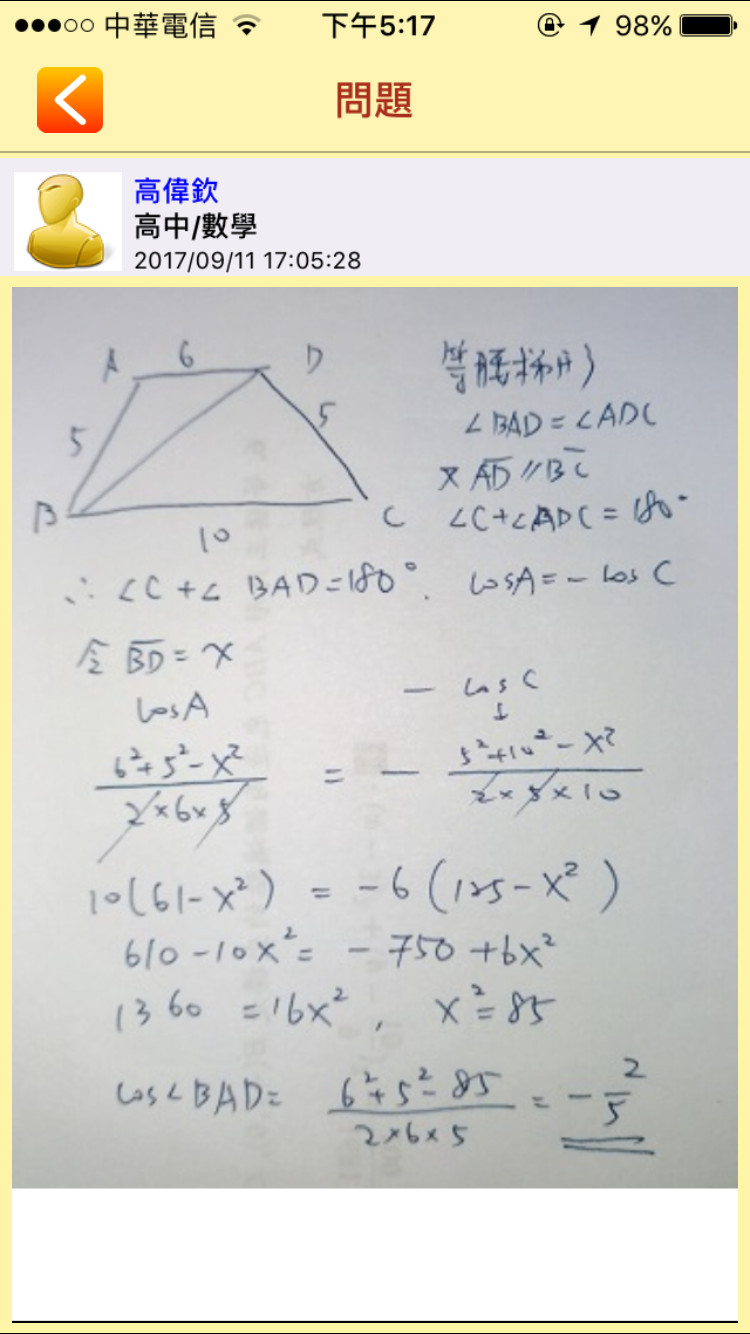 ●●●○○ 中華電信 下午5:17 98%
問題
高偉欽
高中/數學
2017/09/11 17:05:28
A 6 D
等腰梯形
∠BAD = ∠ADC
5 5
又 AD // BC
B 10 C
∠C+∠ADC = 180°
∴ ∠C + ∠BAD = 180°. cosA = - cos C
令 BD = x
cosA - cos C
↓
(6²+5²-x²)/(2×6×5) = - (5²+10²-x²)/(2×5×10)
10(61-x²) = -6(125-x²)
610-10x² = -750+6x²
1360 = 16x², x² = 85
cos∠BAD = (6²+5²-85)/(2×6×5) = -2/5